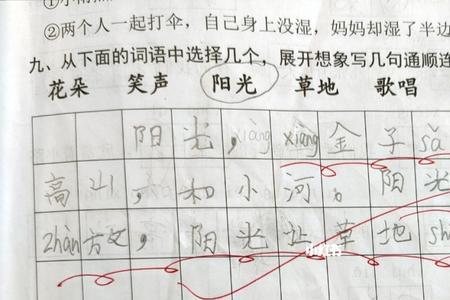 ②两个人一起打伞，自己身上没湿，妈妈却湿了半边
九、从下面的词语中选择几个，展开想象写几句通顺连
花朵 笑声 阳光 草地 歌唱
阳光，xiàng xiàng 金子 sǎ
高山，和小河。阳光
zhàn 放，阳光让草地 sh
小红书